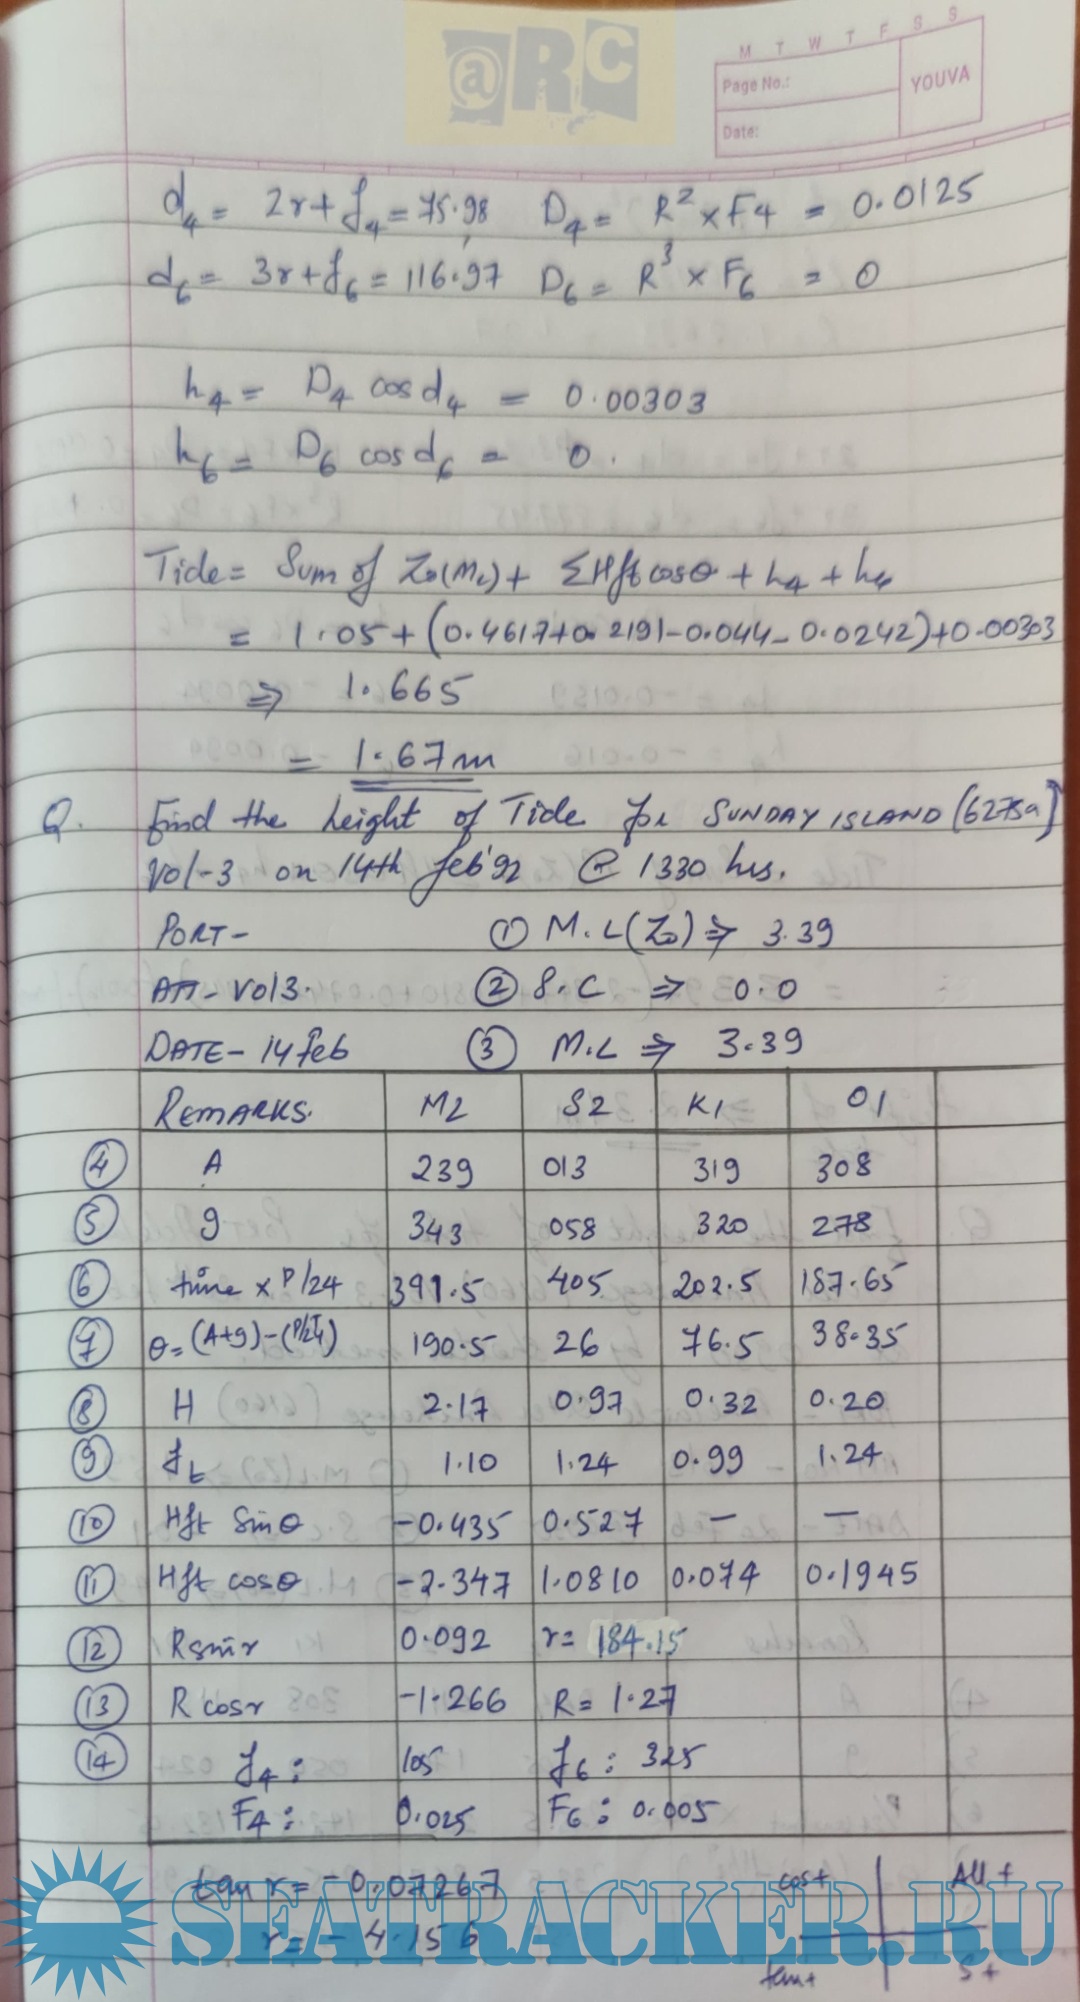 @RC
M T W T F S S
Page No.:
YOUVA
Date:
d4 = 2r + f4 = 75.98 D4 = R² × F4 = 0.0125
d6 = 3r + f6 = 116.97 D6 = R³ × F6 = 0
h4 = D4 cos d4 = 0.00303
h6 = D6 cos d6 = 0.
Tide = Sum of Zo(ML) + ΣHft cosθ + h4 + h6
= 1.05 + (0.4617+0.2191-0.044-0.0242)+0.00303
⇒ 1.665
= 1.67m
Q. Find the height of Tide for SUNDAY ISLAND (6275a)
Vol-3 on 14th feb'92 @ 1330 hrs.
PORT- ① M.L(Zo) ⇒ 3.39
ATT- Vol3. ② S.C ⇒ 0.0
DATE- 14 Feb ③ M.L ⇒ 3.39
REMARKS. M2 S2 K1 O1
④ A 239 013 319 308
⑤ g 343 058 320 278
⑥ time × P/24 391.5 405 202.5 187.65
⑦ θ= (A+g)-(P/24) 190.5 26 76.5 38.35
⑧ H 2.17 0.97 0.32 0.20
⑨ ft 1.10 1.24 0.99 1.24
⑩ Hft Sinθ -0.435 0.527 — —
⑪ Hft cosθ -2.347 1.0810 0.074 0.1945
⑫ Rsinr 0.092 r= 184.15
⑬ R cosr -1.266 R= 1.27
⑭ f4: 105 f6: 325
F4: 0.025 F6: 0.005
tan r = -0.07267 cos+ All+
r = -4.156 tan+ S+
SEATRACKER.RU